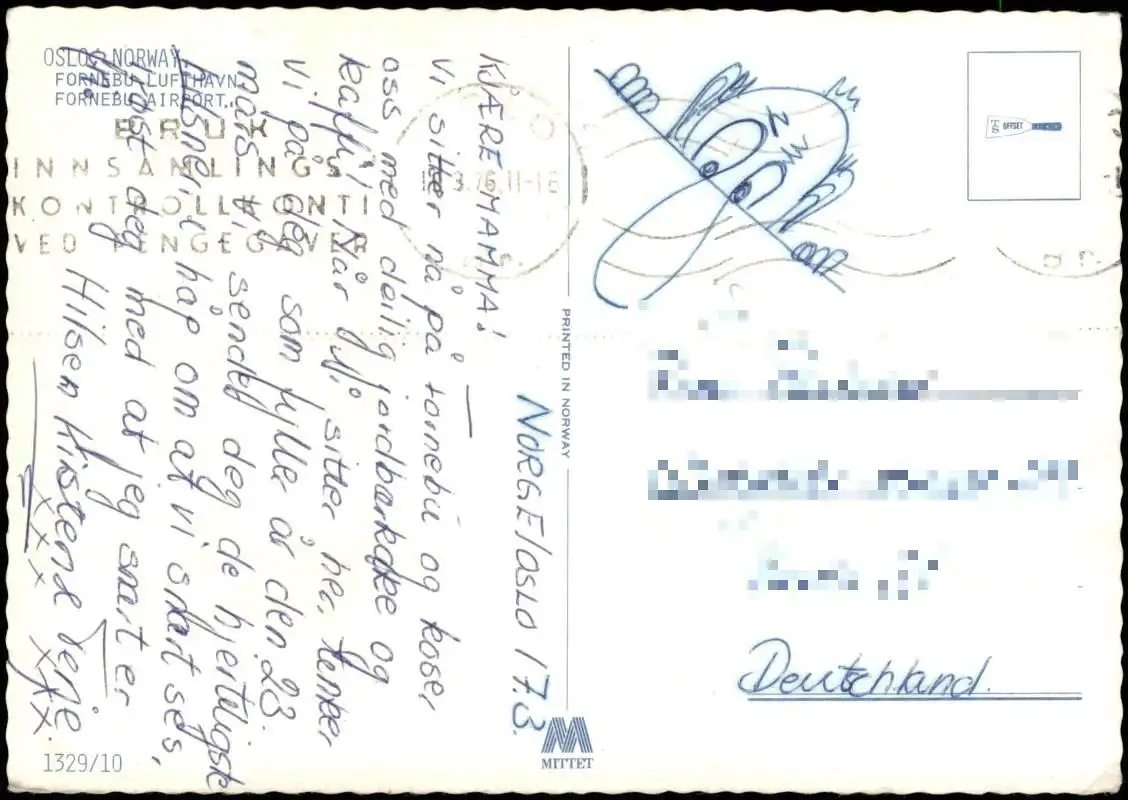 OSLO, NORWAY.
FORNEBU LUFTHAVN.
FORNEBU AIRPORT.
BRUK
INNSAMLINGS
KONTROLLKONTI
VED PENGEGAVER
3.76.11-16
TS OFFSET
NORGE/OSLO 17.3.
KJÆRE MAMMA!
Vi sitter nå på Fornebu og koser
oss med deilig jordbærkake og
kaffe! Når vi sitter her, tenker
vi på deg som fylle år den 23
mars. Vi sender deg de hjerteligste
hilsner, i håp om at vi snart ses,
trøst deg med at jeg snart er
Hilsen Kirsten & Terje
xxx xxx.
PRINTED IN NORWAY
Deutschland.
1329/10
MITTET